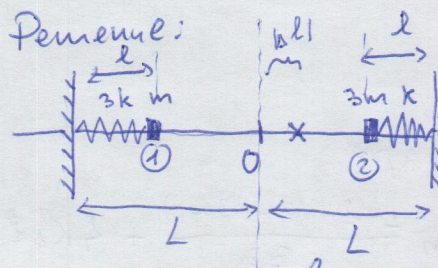 Решение:
l |Δl| l
3k m 3m k
① 0 x ②
L L